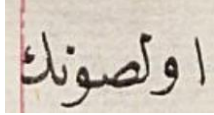 اولصونك